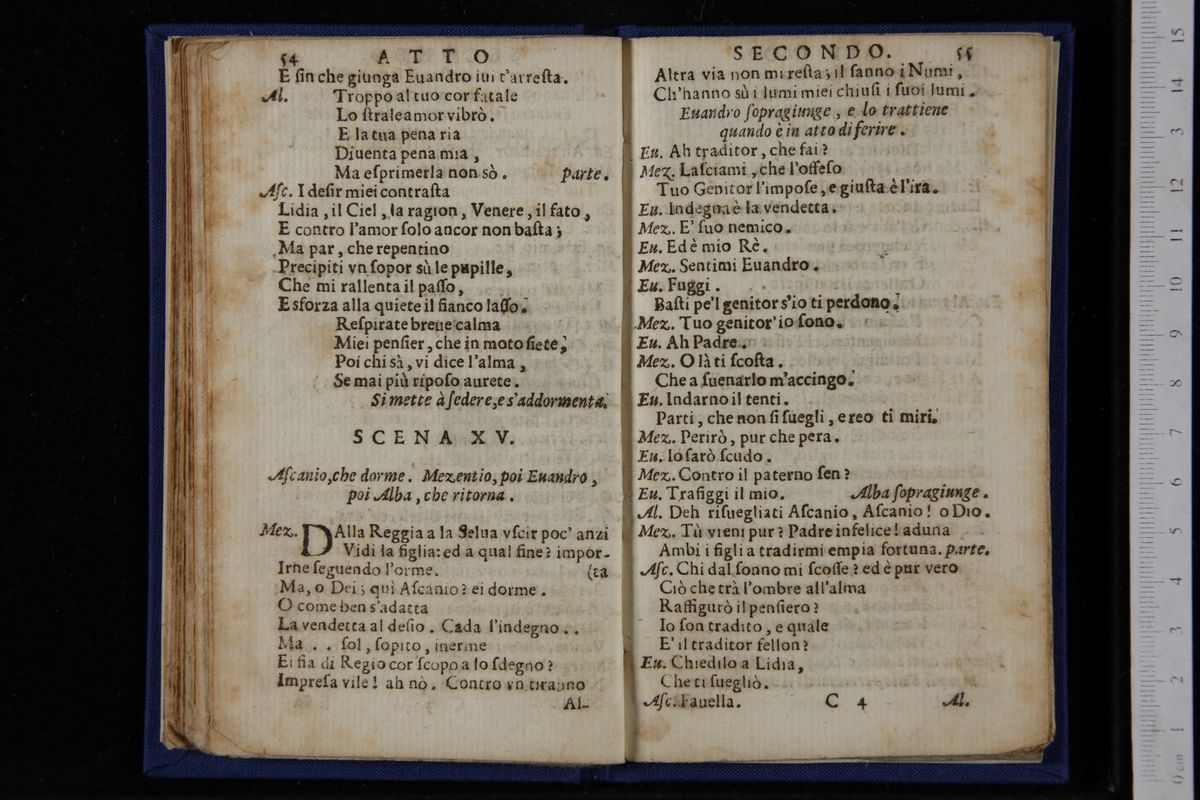 54 ATTO
E ſin che giunga Euandro iui t'arreſta.
Al. Troppo al tuo cor fatale
Lo ſtrale amor vibrò.
E la tua pena ria
Diuenta pena mia,
Ma eſprimerla non sò. parte.
Aſc. I deſir miei contraſta
Lidia, il Ciel, la ragion, Venere, il fato,
E contro l'amor ſolo ancor non baſta;
Ma par, che repentino
Precipiti vn ſopor sù le pupille,
Che mi rallenta il paſſo,
E sforza alla quiete il fianco laſſo.
Reſpirate breue calma
Miei penſier, che in moto ſiete,
Poi chi sà, vi dice l'alma,
Se mai più ripoſo aurete.
Si mette à ſedere, e s'addormenta.
SCENA XV.
Aſcanio, che dorme. Mezentio, poi Euandro,
poi Alba, che ritorna.
Mez. DAlla Reggia a la Selua vſcir poc' anzi
Vidi la figlia: ed a qual fine? impor-
Irne ſeguendo l'orme. (ta
Ma, o Dei; quì Aſcanio? ei dorme.
O come ben s'adatta
La vendetta al deſio. Cada l'indegno..
Ma . . ſol, ſopito, inerme
Ei fia di Regio cor ſcopo a lo ſdegno?
Impreſa vile! ah nò. Contro vn tiranno
Al-
SECONDO. 55
Altra via non mi reſta; il ſanno i Numi,
Ch'hanno sù i lumi miei chiuſi i ſuoi lumi.
Euandro ſopragiunge, e lo trattiene
quando è in atto di ferire.
Eu. Ah traditor, che fai?
Mez. Laſciami, che l'offeſo
Tuo Genitor l'impoſe, e giuſta è l'ira.
Eu. Indegna è la vendetta.
Mez. E' ſuo nemico.
Eu. Ed è mio Rè.
Mez. Sentimi Euandro.
Eu. Fuggi.
Baſti pe'l genitor s'io ti perdono.
Mez. Tuo genitor' io ſono.
Eu. Ah Padre.
Mez. O là ti ſcoſta.
Che a ſuenarlo m'accingo.
Eu. Indarno il tenti.
Parti, che non ſi ſuegli, e reo ti miri.
Mez. Perirò, pur che pera.
Eu. Io ſarò ſcudo.
Mez. Contro il paterno ſen?
Eu. Trafiggi il mio. Alba ſopragiunge.
Al. Deh riſuegliati Aſcanio, Aſcanio! o Dio.
Mez. Tù vieni pur? Padre infelice! aduna
Ambi i figli a tradirmi empia fortuna. parte.
Aſc. Chi dal ſonno mi ſcoſſe? ed è pur vero
Ciò che trà l'ombre all'alma
Raffigurò il penſiero?
Io ſon tradito, e quale
E' il traditor fellon?
Eu. Chiedilo a Lidia,
Che ti ſuegliò.
Aſc. Fauella. C 4 Al.
15
14
13
12
11
10
9
8
7
6
5
4
3
2
1
0 cm